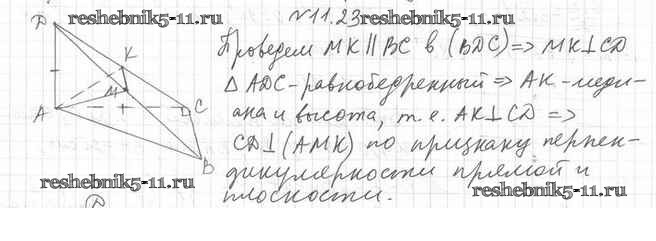 reshebnik5-11.ru
№11.23 reshebnik5-11.ru
Проведем MK∥BC в (BDC)=> MK⊥CD
△ADC-равнобедренный => AK-меди-
ана и высота, т.е. AK⊥CD =>
CD⊥(AMK) по признаку перпен-
дикулярности прямой и
плоскости.
D
K
M
A
C
B
reshebnik5-11.ru
reshebnik5-11.ru